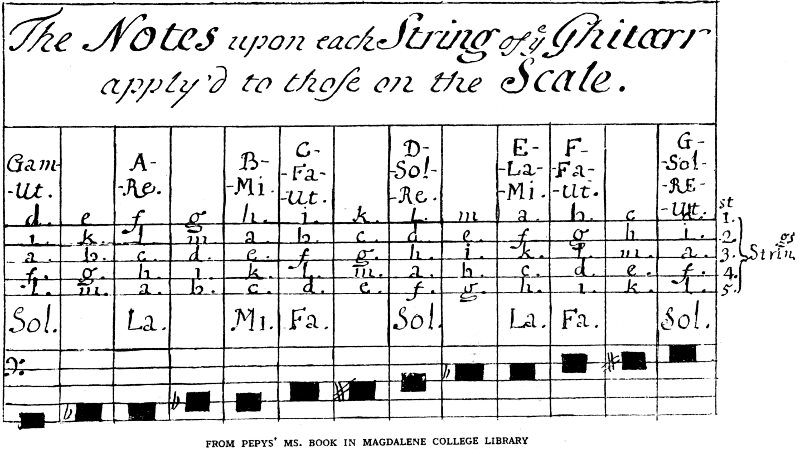 The Notes upon each String of yͤ Ghitarr
apply'd to thoſe on the Scale.
Gam-
-Ut.
A-
-Re.
B-
-Mi.
C-
-Fa-
-Ut.
D-
-Sol-
-Re.
E-
-La-
-Mi.
F-
-Fa-
-Ut.
G-
-Sol-
-RE-
-Ut.
d. e f g h. i. k. l. m a b. c d. 1.st
i. k. l m a b. c d. e. f g h i. 2.
a b. c. d. e f g. h i. k. l m. a. 3. Strings
f. g. h i. k l. m. a b c d. e f. 4.
l. m. a. b. c. d. e f. g h. i k l. 5.
Sol. La. Mi. Fa. Sol. La. Fa. Sol.
FROM PEPYS' MS. BOOK IN MAGDALENE COLLEGE LIBRARY